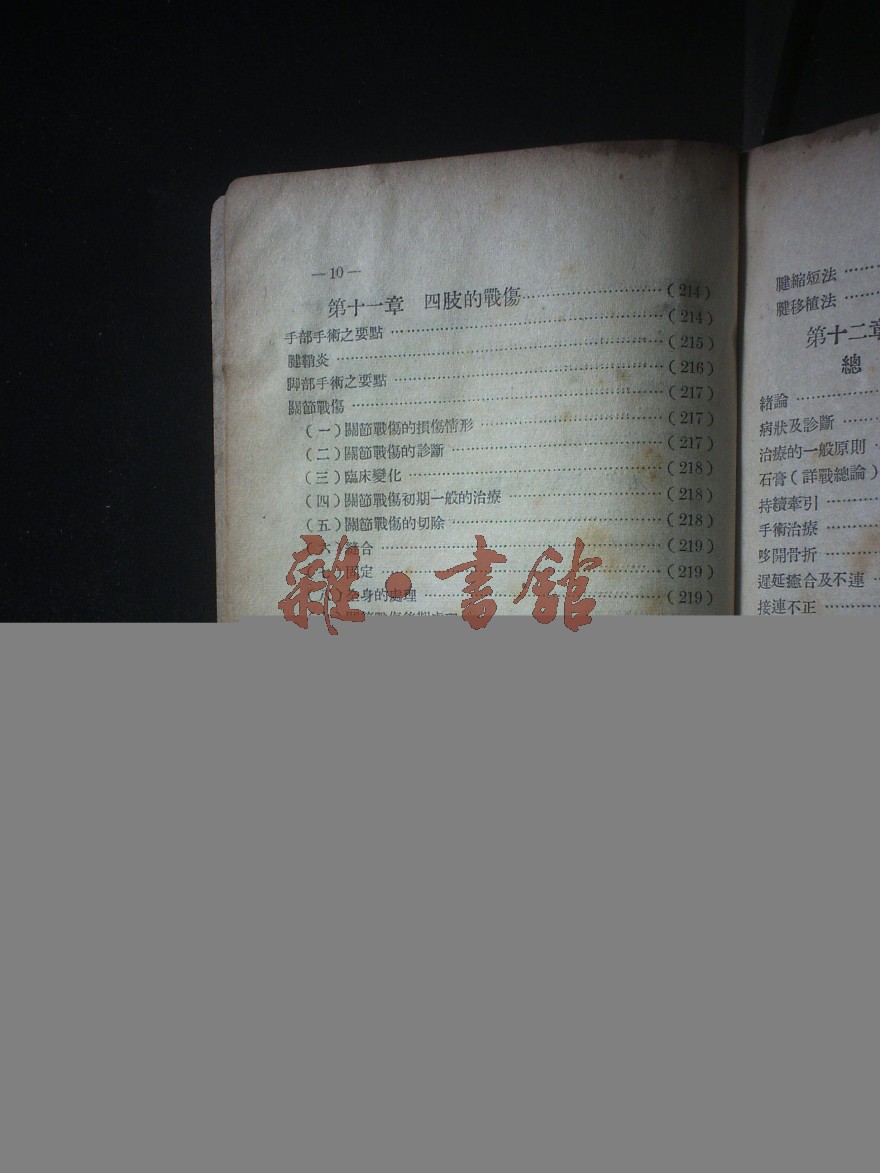 —10—
第十一章 四肢的戰傷……(214)
手部手術之要點……(214)
腱鞘炎……(215)
脚部手術之要點……(216)
關節戰傷……(217)
(一)關節戰傷的損傷情形……(217)
(二)關節戰傷的診斷……(217)
(三)臨床變化……(218)
(四)關節戰傷初期一般的治療……(218)
(五)關節戰傷的切除……(218)
(六)縫合……(219)
(七)固定……(219)
全身的處理……(219)
雜·書館
腱縮短法……
腱移植法……
第十二章
總
緒論……
病狀及診斷……
治療的一般原則
石膏(詳戰總論)
持續牽引……
手術治療……
哆開骨折……
遲延癒合及不連
接連不正……